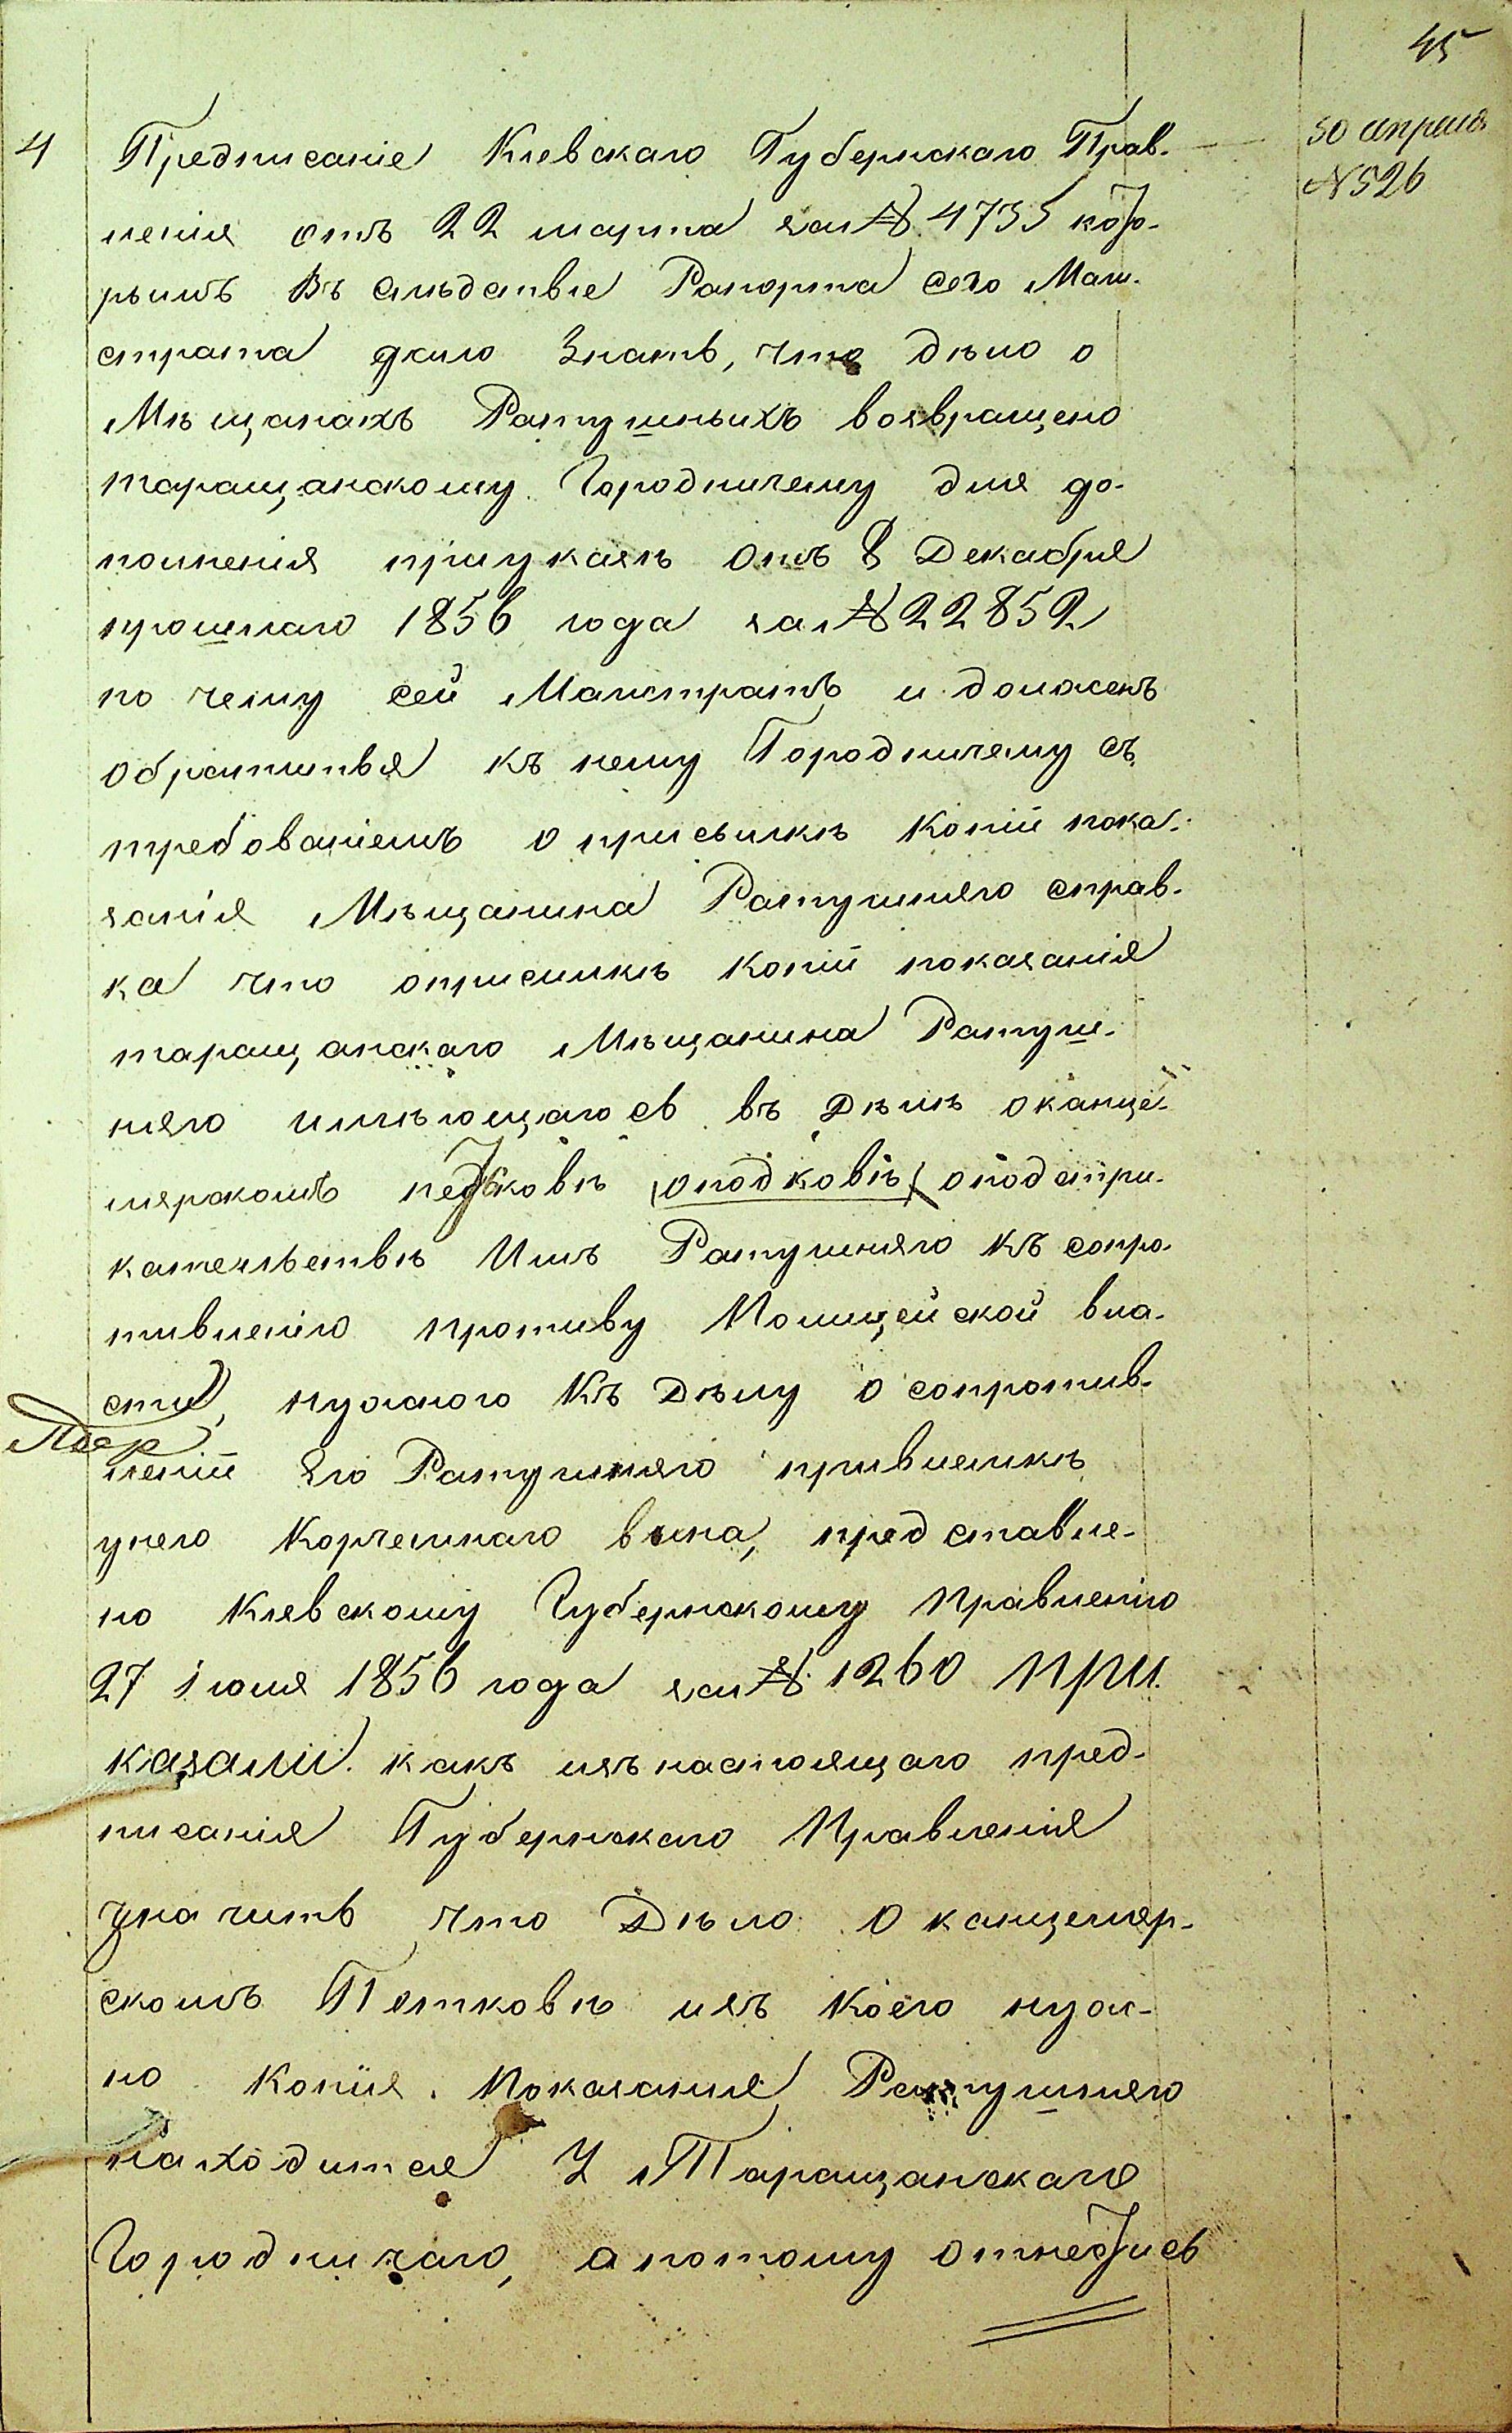 45
30 апреля
№ 526
4 Предписаніе Кіевскаго Губернскаго Прав-
ленія отъ 22 марта за № 4735 кото-
рымъ въ слѣдствіе Рапорта сего Маги-
страта дало знать, что дѣло о
Мѣщанахъ Ратушныхъ возвращено
таращанскому Городничему для до-
полненія приуказѣ отъ 8 Декабря
прошлаго 1856 года за № 22852
по чему сей Магистратъ и долженъ
обратится къ нему Городничему съ
требованіемъ о присылкѣ копіи пока-
занія Мѣщанина Ратушняго справ-
ка что оприсылкѣ копіи показанія
таращанскаго Мѣщанина Ратуш-
няго имѣющагось въ Дѣлѣ оканце-
лярскомъ петковѣ (оподковѣ) оподстре-
кательствѣ Имъ Ратушняго къ сопро-
тивленію противу Полицейской вла-
сти, нужного къ Дѣлу о сопротив-
леніи Его Ратушняго привыемкѣ
унего Корчемнаго вина, представле-
но Кіевскому Губернскому Правленію
27 іюля 1856 года за № 1260 При-
казали. какъ изъ настоящаго пред-
писанія Губернскаго Правленія
значитъ что Дѣло о канцеляр-
скомъ Петковѣ изъ коего нуж-
но копія показанія Ратушняго
находится У Таращанскаго
Городничаго, а потому отнестись